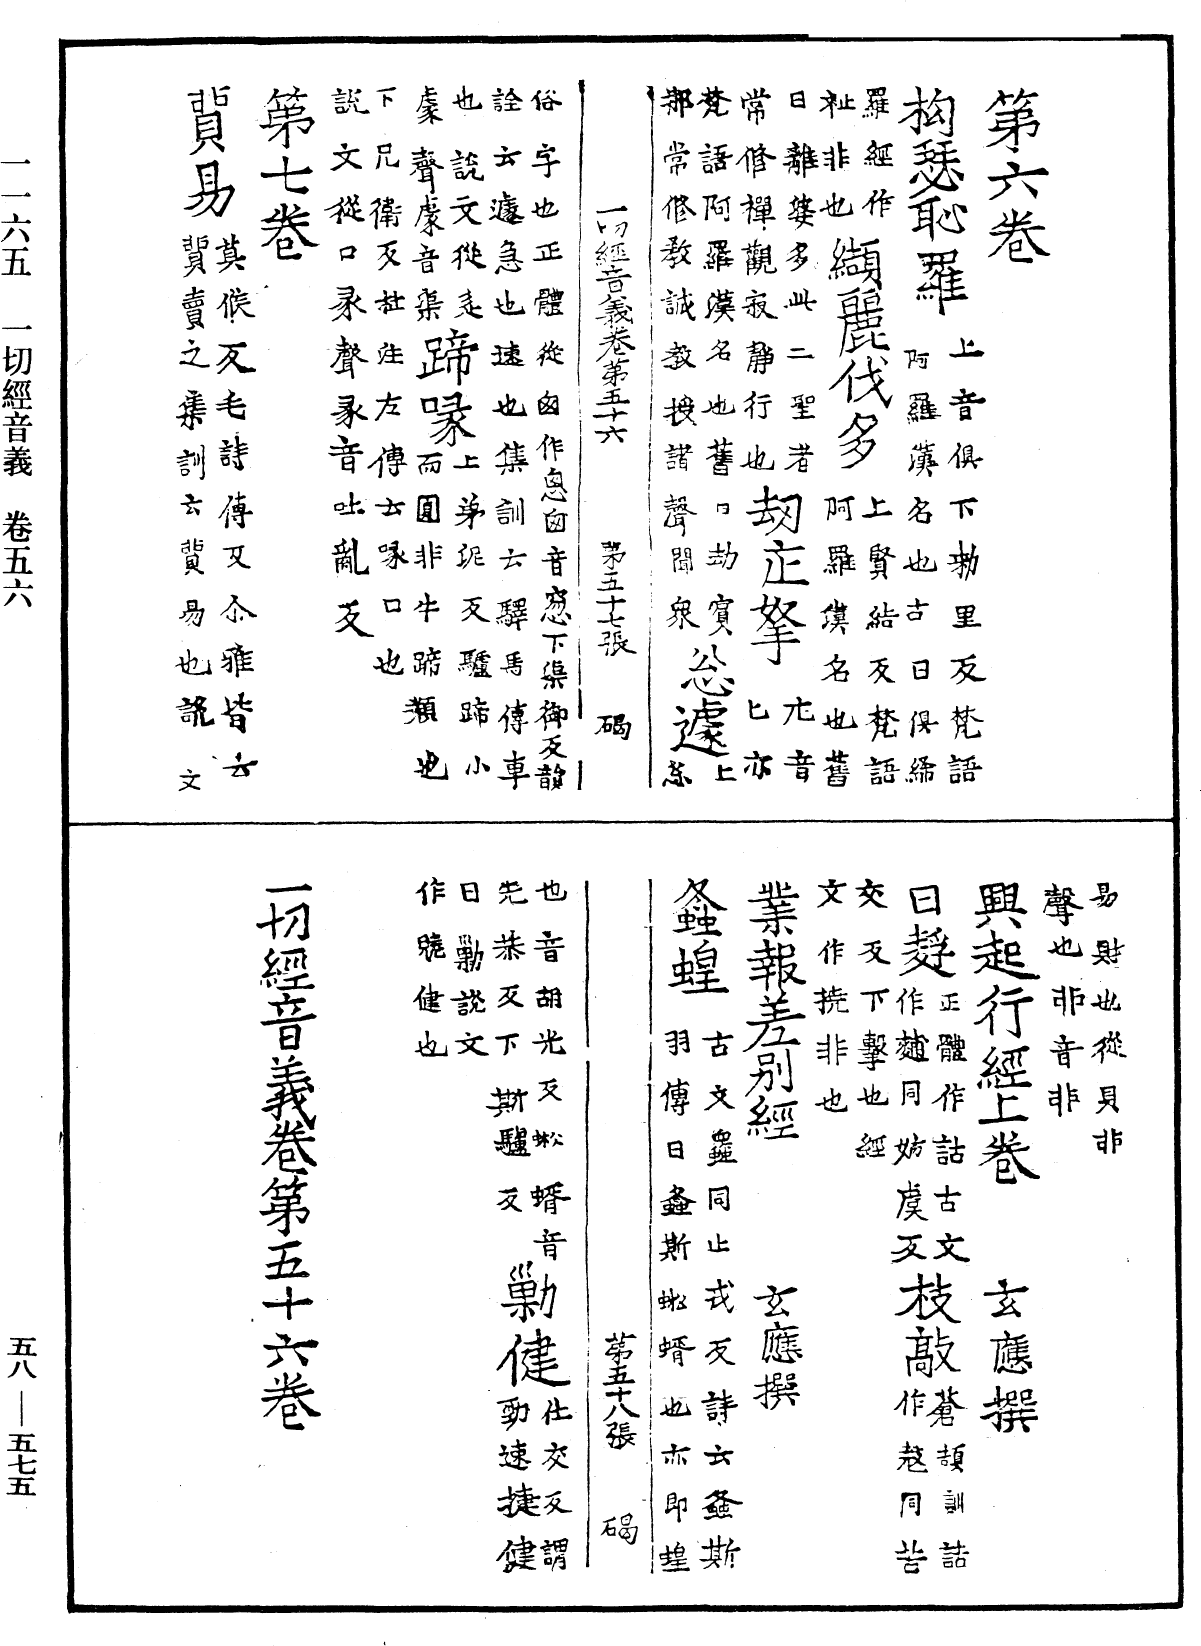 第六卷
拘瑟恥羅 上音俱下勑里反梵語
阿羅漢名也古曰俱絺
羅經作
祉非也 纈麗伐多 上賢結反梵語
阿羅漢名也舊
曰離婆多此二聖者
常修禪觀寂靜行也 劫疋拏 尤音
匕亦
梵語阿羅漢名也舊曰劫賓
那常修教誡教授諸聲聞衆 忩遽 上
忩
俗字也正體從囪作悤囪音窓下渠御反韻
詮云遽急也速也集訓云驛馬傳車
也說文從辵
豦聲豦音渠 蹄喙 上弟泥反驢蹄小
而圓非牛蹄類也
下兄衛反杜注左傳云喙口也
說文從口彖聲彖音吐亂反
第七卷
貿易 莫候反毛詩傳又尒雅皆云
貿賣之集訓云貿易也說文
易財也從貝非
聲也非音非
興起行經上卷 玄應撰
曰𪌘 正體作䛈古文
作麱同妨虞反 枝敲 蒼頡訓詁
作㪣同苦
交反下擊也經
文作撓非也
業報差別經 玄應撰
螽蝗 古文𧑄同止戎反詩云螽斯
羽傳曰螽斯蜙蝑也亦即蝗
也音胡光反蜙蝑音
先恭反下斯驢反 勦健 仕交反謂
勁速捷健
曰勦說文
作䟁健也
一切經音義卷第五十六卷
一切經音義卷第五十六 第五十七張 碣
第五十八張 碣
一一六五 一切經音義 卷五六
五八—五七五